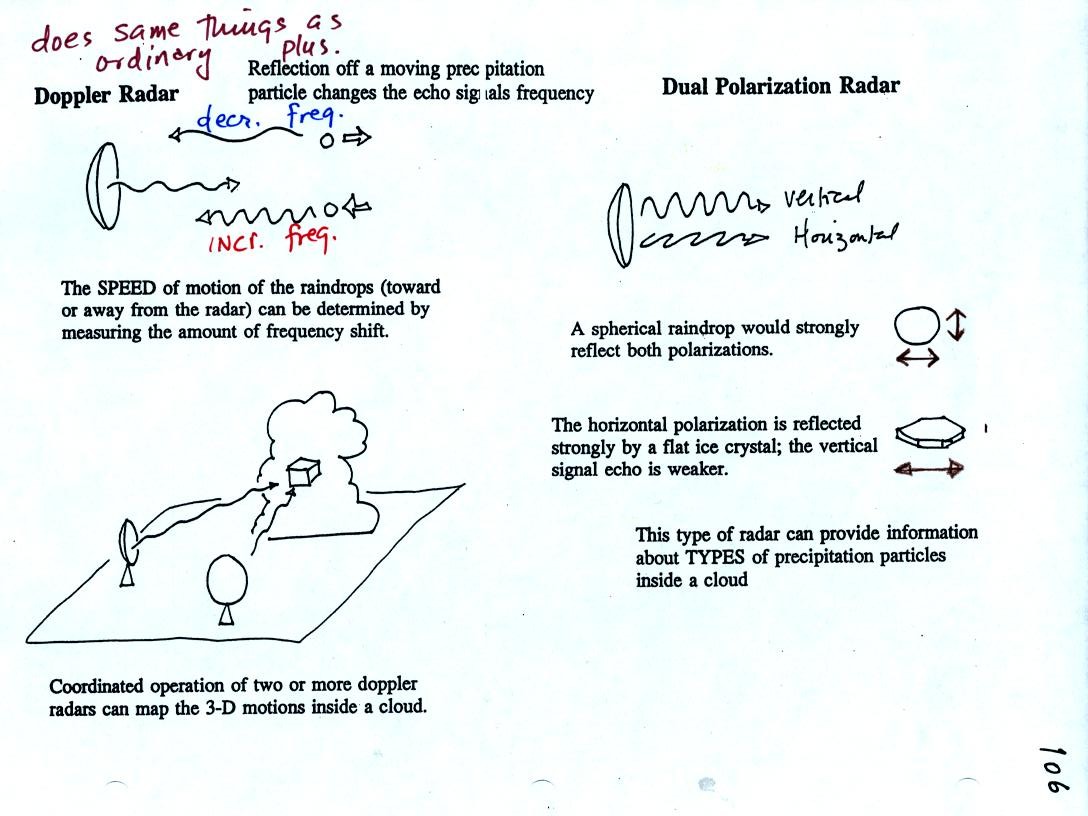 does same things as
ordinary plus.
Doppler Radar
Reflection off a moving prec pitation
particle changes the echo sig als frequency
decr. freq.
INCr. freq.
The SPEED of motion of the raindrops (toward
or away from the radar) can be determined by
measuring the amount of frequency shift.
Coordinated operation of two or more doppler
radars can map the 3-D motions inside a cloud.
Dual Polarization Radar
vertical
Horizontal
A spherical raindrop would strongly
reflect both polarizations.
The horizontal polarization is reflected
strongly by a flat ice crystal; the vertical
signal echo is weaker.
This type of radar can provide information
about TYPES of precipitation particles
inside a cloud
106